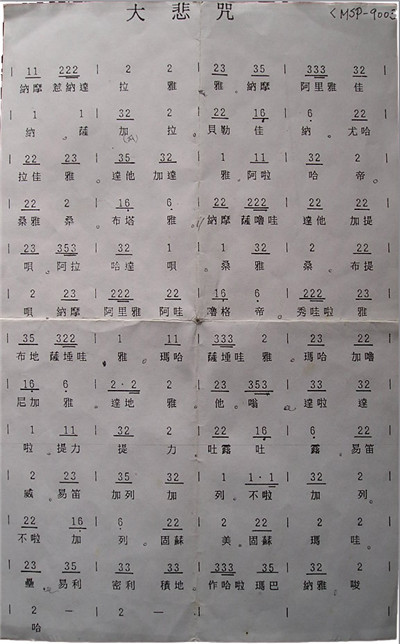 大悲咒 <MSP-900
| 11 222 | 2 2 | 23 35 | 333 32 |
納摩 惹納達 拉 雅 雅。納摩 阿里雅 佳
| 1 1 | 32 2 | 22 16 | 6 22 |
納。薩 加 拉。貝勒 佳 納。尤哈
| 22 23 | 35 32 | 1 11 | 32 2 |
拉佳 雅。達他 加達 雅。阿啦 哈 帝。
| 22 2 | 16 6 | 22 222 | 22 22 |
桑雅 桑。布塔 雅。納摩 薩嚕哇 達他 加提
| 23 353 | 32 1 | 1 32 | 2 22 |
唄。阿拉 哈達 唄。桑雅 桑。布提
| 2 23 | 222 22 | 16 6 | 222 23 |
唄。納摩 阿里雅 阿哇 嚕格 帝。秀哇啦 雅
| 35 322 | 2 22 | 333 2 | 23 22 |
布地 薩埵哇 雅。瑪哈 薩埵哇 雅。瑪哈 加嚕
| 16 6 | 2·2 2 | 23 353 | 33 32 |
尼加 雅。達地 雅 他。嗡 達啦 達
| 1 11 | 32 2 | 22 16 | 6 22 |
啦。提力 提 力。吐露 吐 露。易笛
| 2 23 | 35 32 | 1 1·1 | 32 2 |
威。易笛 加列 加 列。不啦 加 列。
| 22 16 | 6 22 | 2 22 | 2 2 |
不啦 加 列。固蘇 美。固蘇 瑪 哇。
| 23 35 | 33 33 | 333 35 | 32 2 |
壘。易利 密利 積地。作哈啦 瑪巴 納雅。唆
| 2 — | 2 — |
哈